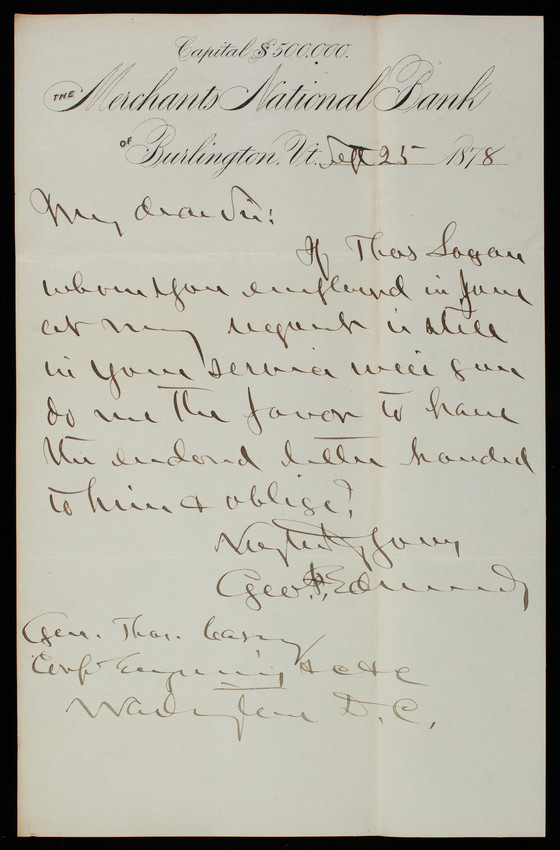 Capital $500.000.
THE Merchants National Bank
OF Burlington, Vt. Sept 25 1878
My dear Sir:
If Thos Logan
whom you employed in June
at my request is still
in your service will you
do me the favor to have
the enclosed letter handed
to him & oblige?
Very truly yours
Geo. F. Edmunds
Gen. Thos. Casey
Corps Engineers &c &c
Washington D.C.